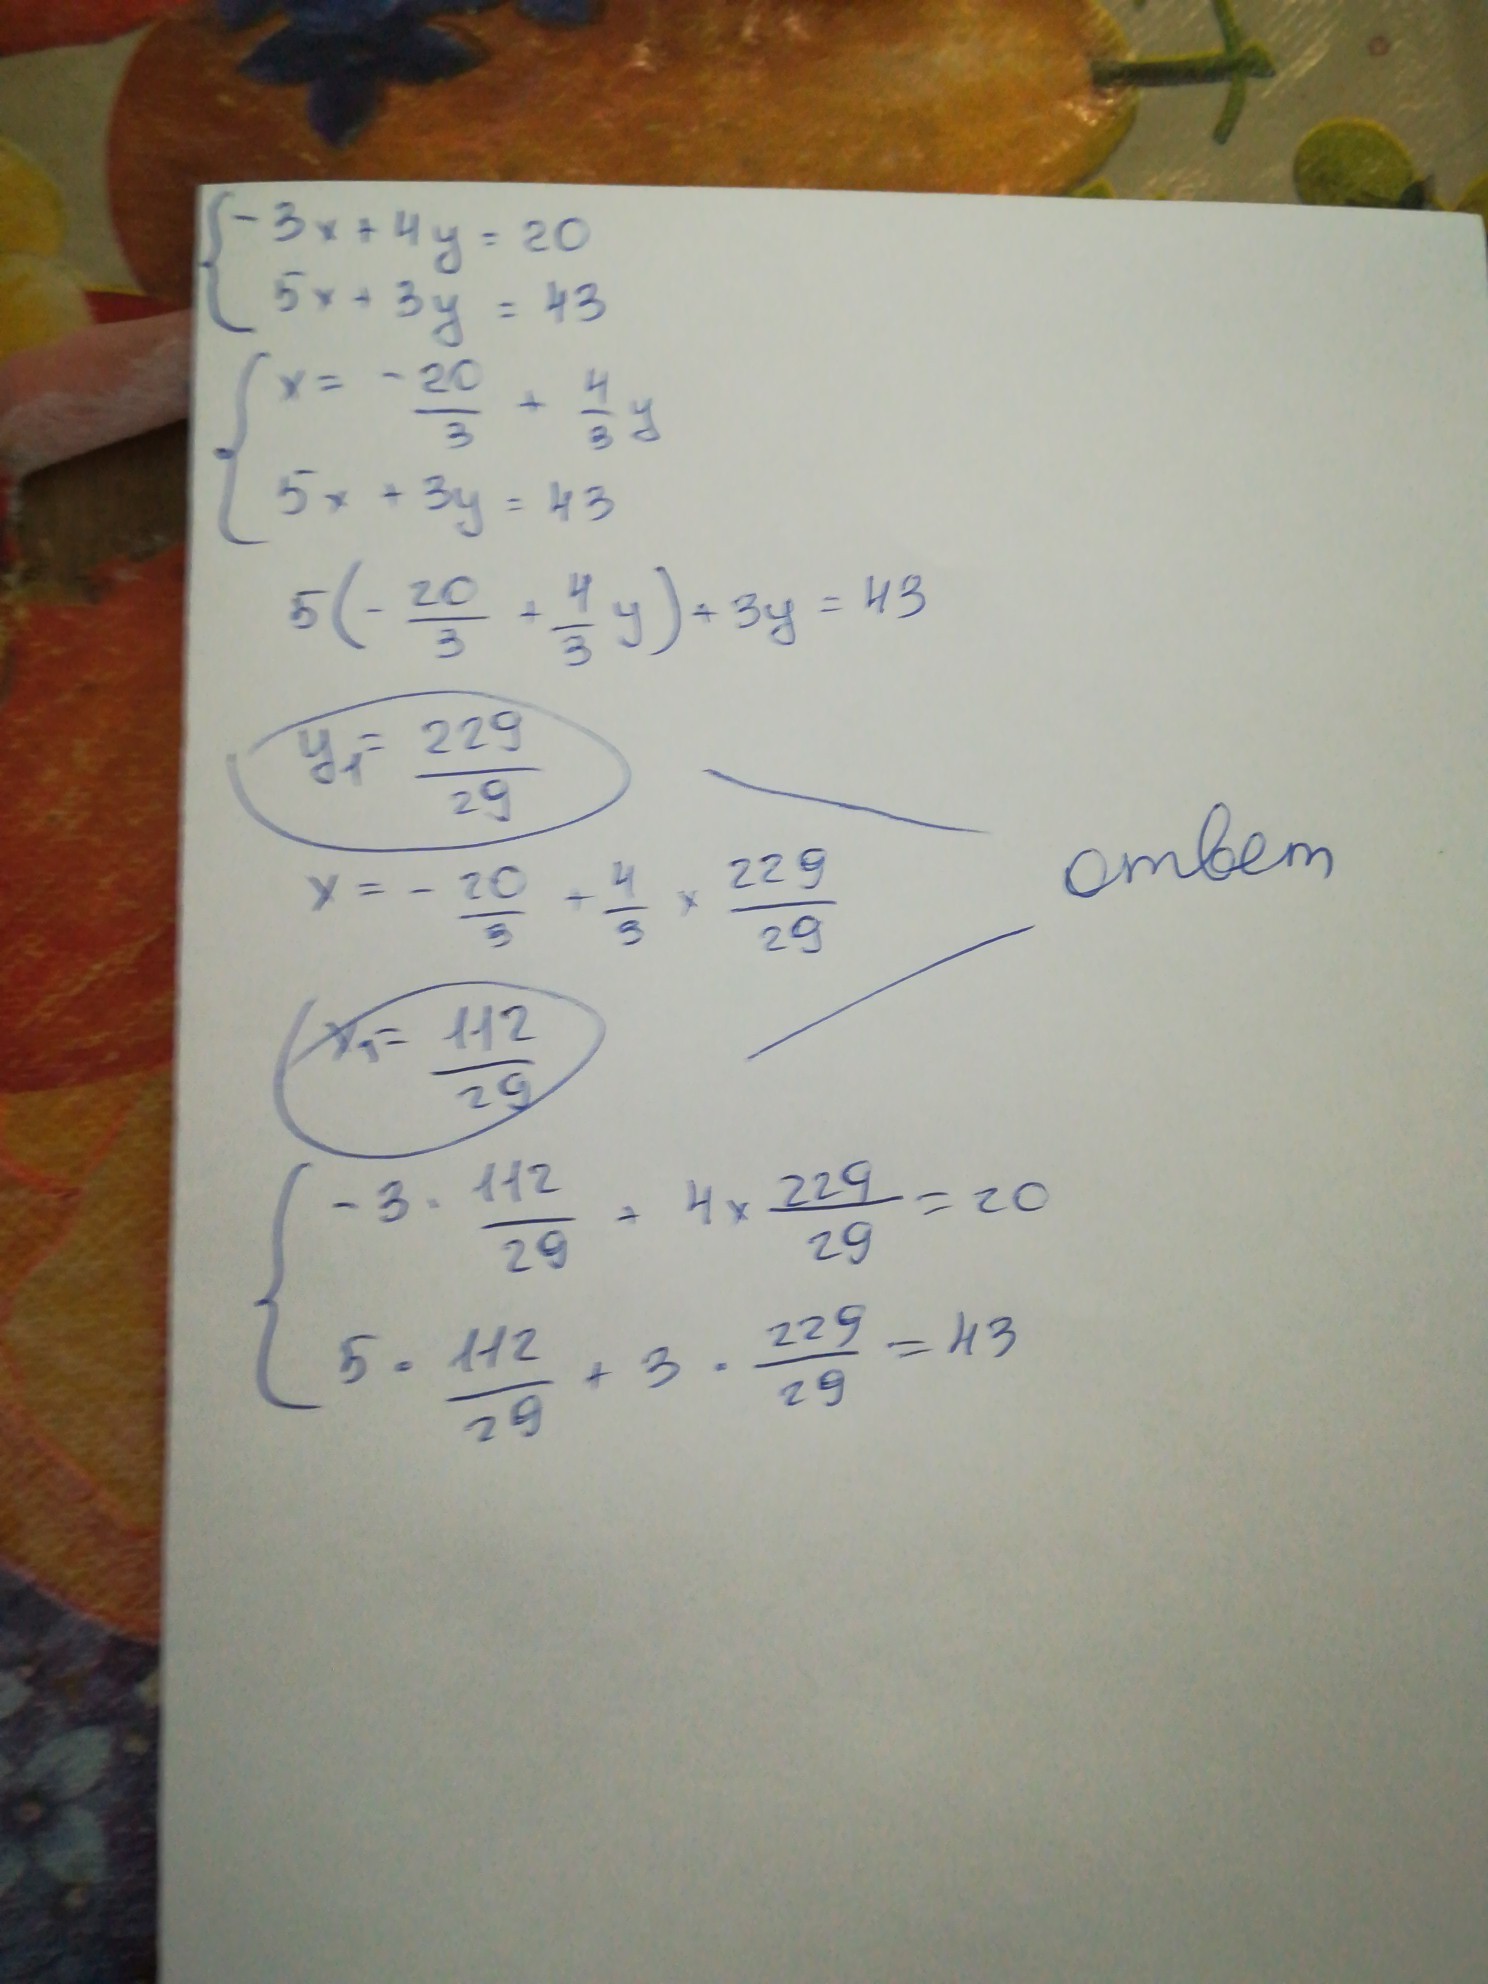 {-3x + 4y = 20
5x + 3y = 43
{x = -20/3 + 4/3 y
5x + 3y = 43
5(-20/3 + 4/3 y) + 3y = 43
y₁ = 229/29
ответ
x = -20/3 + 4/3 × 229/29
x₁ = 112/29
{-3 · 112/29 + 4 × 229/29 = 20
5 · 112/29 + 3 · 229/29 = 43